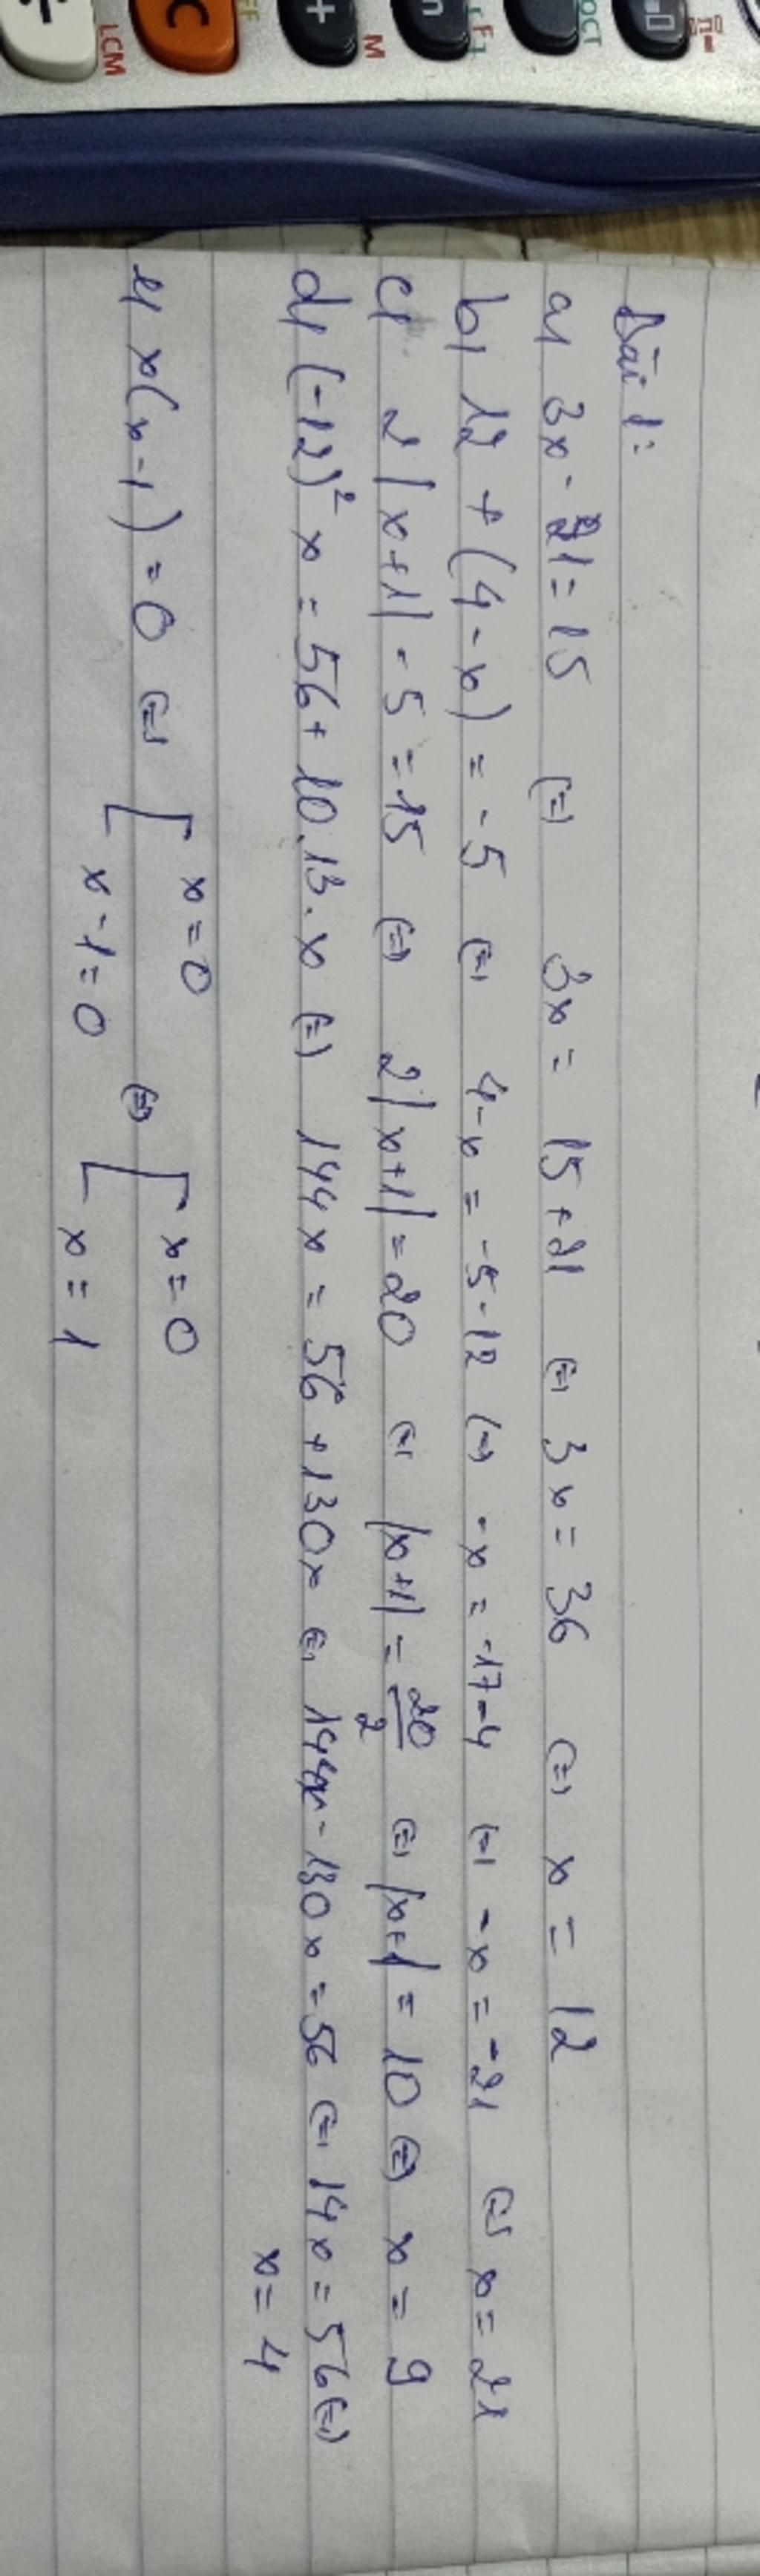 LCM
C
FF
+
M
n
[F]
OCT
Bài 1:
a, 3x - 21 = 15 (=) 3x = 15 + 21 (=) 3x = 36 (=) x = 12
b, 12 + (4 - x) = -5 (=) 4-x = -5-12 (=) -x = -17-4 (=) -x = -21 (=) x = 21
c, 2|x+1| - 5 = 15 (=) 2|x+1| = 20 (=) |x+1| = 20/2 (=) |x+1| = 10 (=) x = 9
d, (-12)² x = 56 + 10.13.x (=) 144x = 56 + 130x (=) 144x - 130x = 56 (=) 14x = 56 (=)
x = 4
e, x(x-1) = 0 (=) [ x = 0 (=) [ x = 0
x - 1 = 0 x = 1